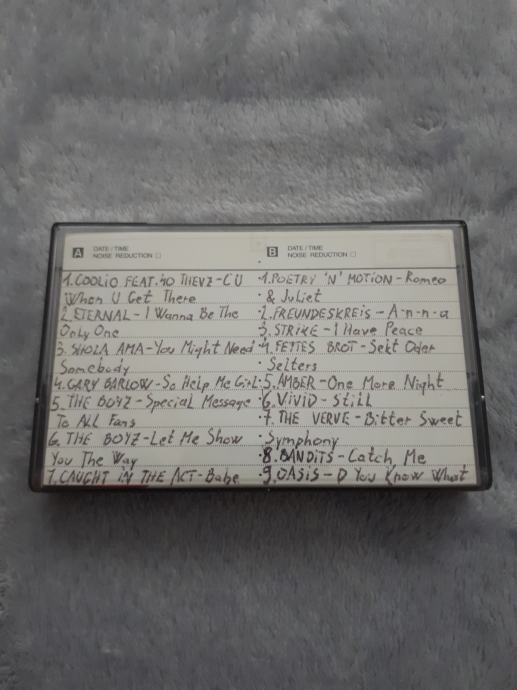 A DATE / TIME
NOISE REDUCTION
1. COOLIO FEAT. 40 THEVZ - C U
When U Get There
2. ETERNAL - I Wanna Be The
Only One
3. SHOLA AMA - You Might Need
Somebody
4. GARY BARLOW - So Help Me Girl
5. THE BOYZ - Special Message
To All Fans
6. THE BOYZ - Let Me Show
You The Way
7. CAUGHT IN THE ACT - Babe
B DATE / TIME
NOISE REDUCTION
1. POETRY 'N' MOTION - Romeo
& Juliet
2. FREUNDESKREIS - A-n-n-a
3. STRIKE - I Have Peace
4. FETTES BROT - Sekt Oder
Selters
5. AMBER - One More Night
6. ViViD - Still
7. THE VERVE - Bitter Sweet
Symphony
8. BANDITS - Catch Me
9. OASIS - D You Know What